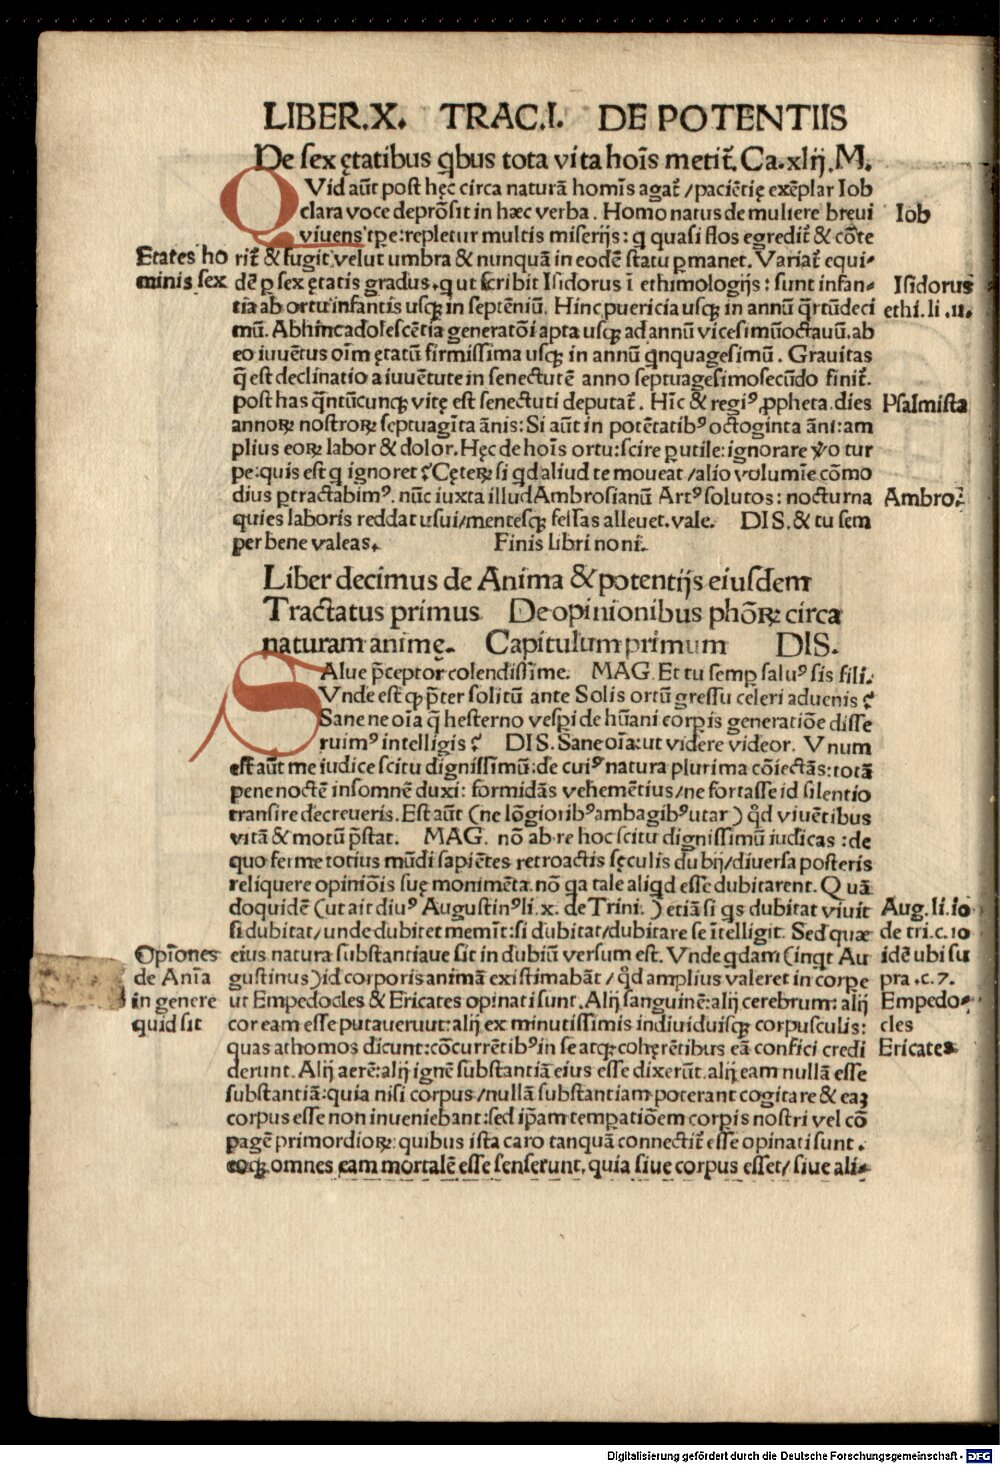 LIBER.X. TRAC.I. DE POTENTIIS
De sex ętatibus qbus tota vita hoīs metit᷑. Ca.xlij. M.
QVid aūt post hęc circa naturā homīs agat᷑ /paciētię exēplar Iob
clara voce deprōsit in hæc verba. Homo natus de muliere breui
viuens tpe: repletur multis miserijs: q quasi flos egredit᷑ & cōte
rit᷑ & fugit velut umbra & nunquā in eodē statu ꝑmanet. Variat᷑ equi-
dē ꝑ sex ętatis gradus. q ut scribit Isidorus ī ethimologijs: sunt infan-
tia ab ortu infantis usqꝫ in septēniū. Hinc puericia usqꝫ in annū q̄rtūdeci
mū. Abhinc adolescētia generatōi apta usqꝫ ad annū vicesimūoctauū. ab
eo iuuētus oīm ętatū firmissima usqꝫ in annū qnquagesimū. Grauitas
q̄ est declinatio a iuuētute in senectutē anno septuagesimosecūdo finit᷑.
post has q̄ntūcunqꝫ vitę est senectuti deputat᷑. Hīc & regiꝰ ꝓpheta. dies
annoꝝ nostroꝝ septuagīta ānis: Si aūt in potētatibꝰ octoginta āni: am
plius eoꝝ labor & dolor. Hęc de hoīs ortu: scire ꝑutile: ignorare v̊o tur
pe: quis est q ignoret? Cęteꝝ si qd aliud te moueat /alio volumīe cōmo
dius ꝑtractabimꝰ. nūc iuxta illud Ambrosianū Artꝰ solutos: nocturna
quies laboris reddat usui/mentesqꝫ fessas alleuet. vale. DIS. & tu sem
per bene valeas. Finis libri noni.
Etates ho
minis sex
Iob
Isidorus
ethi. li .11.
Psalmista
Ambro.
Liber decimus de Anima & potentijs eiusdem
Tractatus primus De opinionibus phōꝝ circa
naturam animę. Capitulum primum DIS.
SAlue p̄ceptor colendissime. MAG. Et tu semp saluꝰ sis fili.
Vnde est qꝫ p̄ter solitū ante Solis ortū gressu celeri aduenis?
Sane ne oīa q̄ hesterno vesꝑi de hūani corꝑis generatiōe disse
ruimꝰ intelligis? DIS. Sane oīa: ut videre videor. Vnum
est aūt me iudice scitu dignissimū: de cuiꝰ natura plurima cōiectās: totā
pene noctē insomnē duxi: formidās vehemētius/ne fortasse id silentio
transire decreueris. Est aūt (ne lōgioribꝰ ambagibꝰ utar) q̊d viuētibus
vitā & motū p̄stat. MAG. nō ab re hoc scitu dignissimū iudicas: de
quo ferme totius mūdi sapiētes retroactis sęculis dubij/diuersa posteris
reliquere opiniōis suę monimēta. nō qa tale aliqd esse dubitarent. Quā
doquidē (ut ait diuꝰ Augustinꝰ li. x. de Trini.) etiā si qs dubitat viuit
si dubitat/unde dubitet memīt: si dubitat/dubitare se ītelligit. Sed quæ
eius natura substantiaue sit in dubiū versum est. Vnde qdam (inqt Au
gustinus) id corporis animā existimabāt / q̊d amplius valeret in corpe
ut Empedocles & Ericates opinati sunt. Alij sanguinē: alij cerebrum: alij
cor eam esse putauerunt: alij ex minutissimis indiuiduisqꝫ corpusculis:
quas athomos dicunt: cōcurrētibꝰ in se atqꝫ cohęrētibus eā confici credi
derunt. Alij aerē: alij ignē substantiā eius esse dixerūt. alij eam nullā esse
substantiā: quia nisi corpus/nullā substantiam poterant cogitare & eaꝫ
corpus esse non inueniebant: sed ip̄am tempatiōem corꝑis nostri vel cō
pagē primordioꝝ: quibus ista caro tanquā connectit᷑ esse opinati sunt.
eoqꝫ omnes eam mortalē esse senserunt. quia siue corpus esset/ siue ali-
Opīones
de Anīa
in genere
quid sit
Aug. li. 10
de tri. c. 10
idē ubi su
pra .c. 7.
Empedo-
cles
Ericates
Digitalisierung gefördert durch die Deutsche Forschungsgemeinschaft - DFG